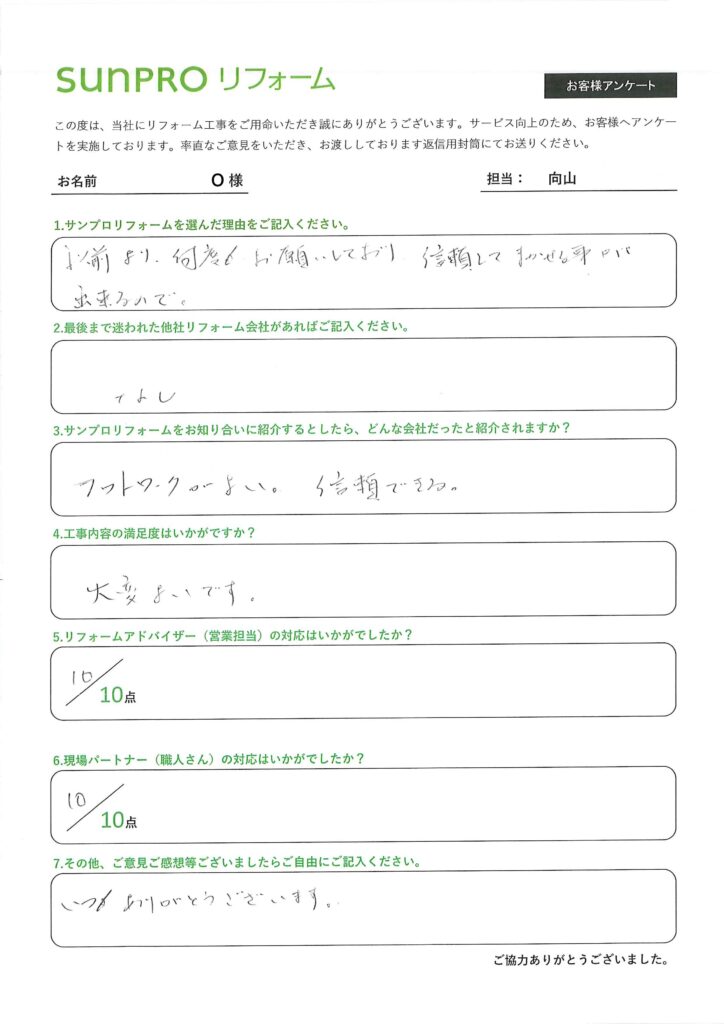 sunPRO リフォーム
お客様アンケート
この度は、当社にリフォーム工事をご用命いただき誠にありがとうございます。サービス向上のため、お客様へアンケー
トを実施しております。率直なご意見をいただき、お渡ししております返信用封筒にてお送りください。
お名前 O 様 担当： 向山
1.サンプロリフォームを選んだ理由をご記入ください。
以前より、何度もお願いしており、信頼してまかせる事が
出来るので。
2.最後まで迷われた他社リフォーム会社があればご記入ください。
なし
3.サンプロリフォームをお知り合いに紹介するとしたら、どんな会社だったと紹介されますか？
フットワークがよい。 信頼できる。
4.工事内容の満足度はいかがですか？
大変よいです。
5.リフォームアドバイザー（営業担当）の対応はいかがでしたか？
10/10点
6.現場パートナー（職人さん）の対応はいかがでしたか？
10/10点
7.その他、ご意見ご感想等ございましたらご自由にご記入ください。
いつもありがとうございます。
ご協力ありがとうございました。